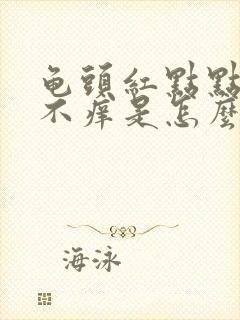 龟頭紅點點
不痒是怎麼
海泳